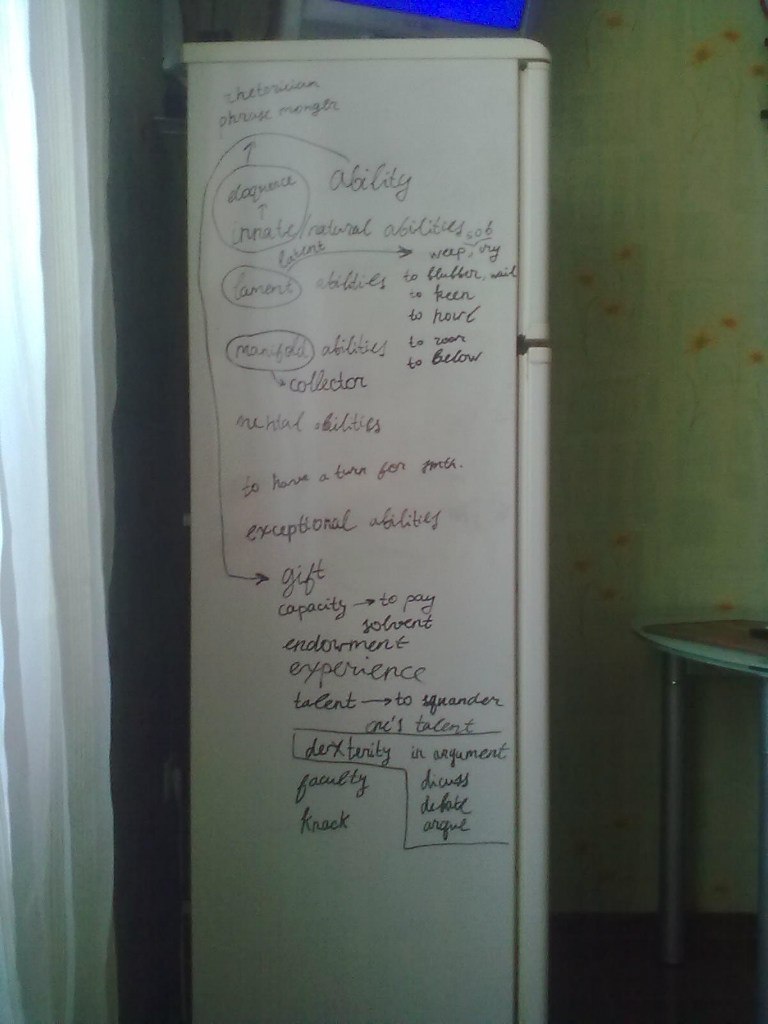 rhetorician
phrase monger
ability
eloquence
innate/natural abilities sob
latent weep, cry
lament abilities to blubber, wail
to keen
to howl
manifold abilities to roar
to below
collector
mental abilities
to have a turn for smth.
exceptional abilities
gift
capacity → to pay
solvent
endowment
experience
talent → to squander
one's talent
dexterity in argument
faculty discuss
debate
knack argue